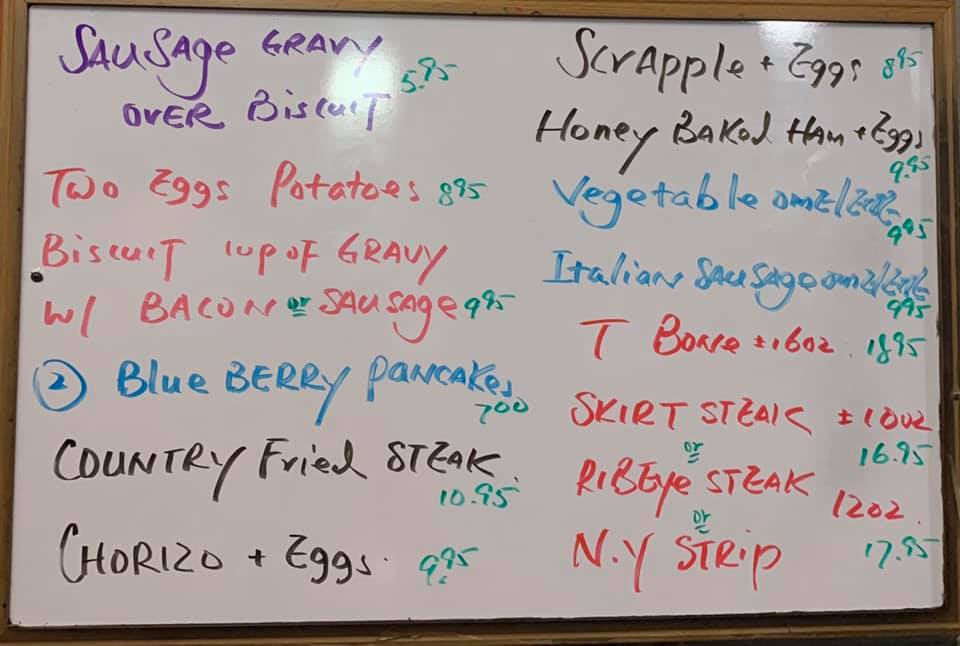 SAUSAge GRAVY
OVER BiscuiT 5.95
Two Eggs Potatoes 895
BiscuiT 1up oF GRAVY
w/ BACON or SAUSAge 995
2 Blue BERRY PANCAKes 700
COUNTRY Fried STEAK 10.95
CHORIZO + Eggs 995
ScrApple + Eggs 895
Honey BaKed HAM + Eggs 9.95
Vegetable omElEttE 995
Italian SAUSAge omElEttE 995
T Bone ±16oz 1895
SKIRT STEAK ±10oz 16.95
or
RiBEye STEAK 12oz
or
N.Y STRip 17.95